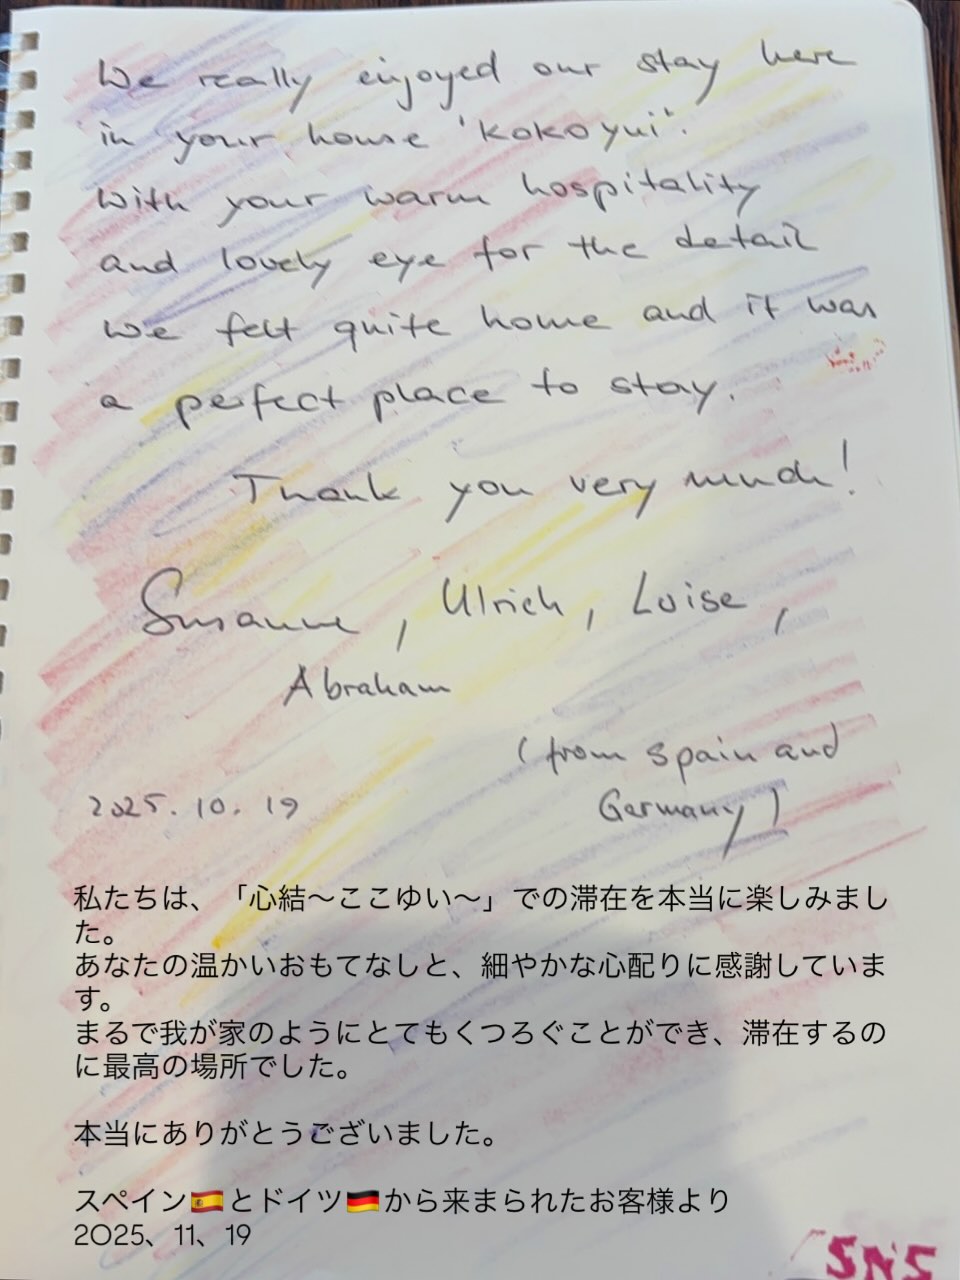 We really enjoyed our stay here
in your home 'kokoyui'.
With your warm hospitality
and lovely eye for the detail
we felt quite home and it was
a perfect place to stay.
Thank you very much!
Susanne, Ulrich, Luise,
Abraham
(from spain and
Germany)
2025.10.19
私たちは、「心結〜ここゆい〜」での滞在を本当に楽しみまし
た。
あなたの温かいおもてなしと、細やかな心配りに感謝していま
す。
まるで我が家のようにとてもくつろぐことができ、滞在するの
に最高の場所でした。
本当にありがとうございました。
スペイン🇪🇸とドイツ🇩🇪から来まられたお客様より
2025、11、19
SNS